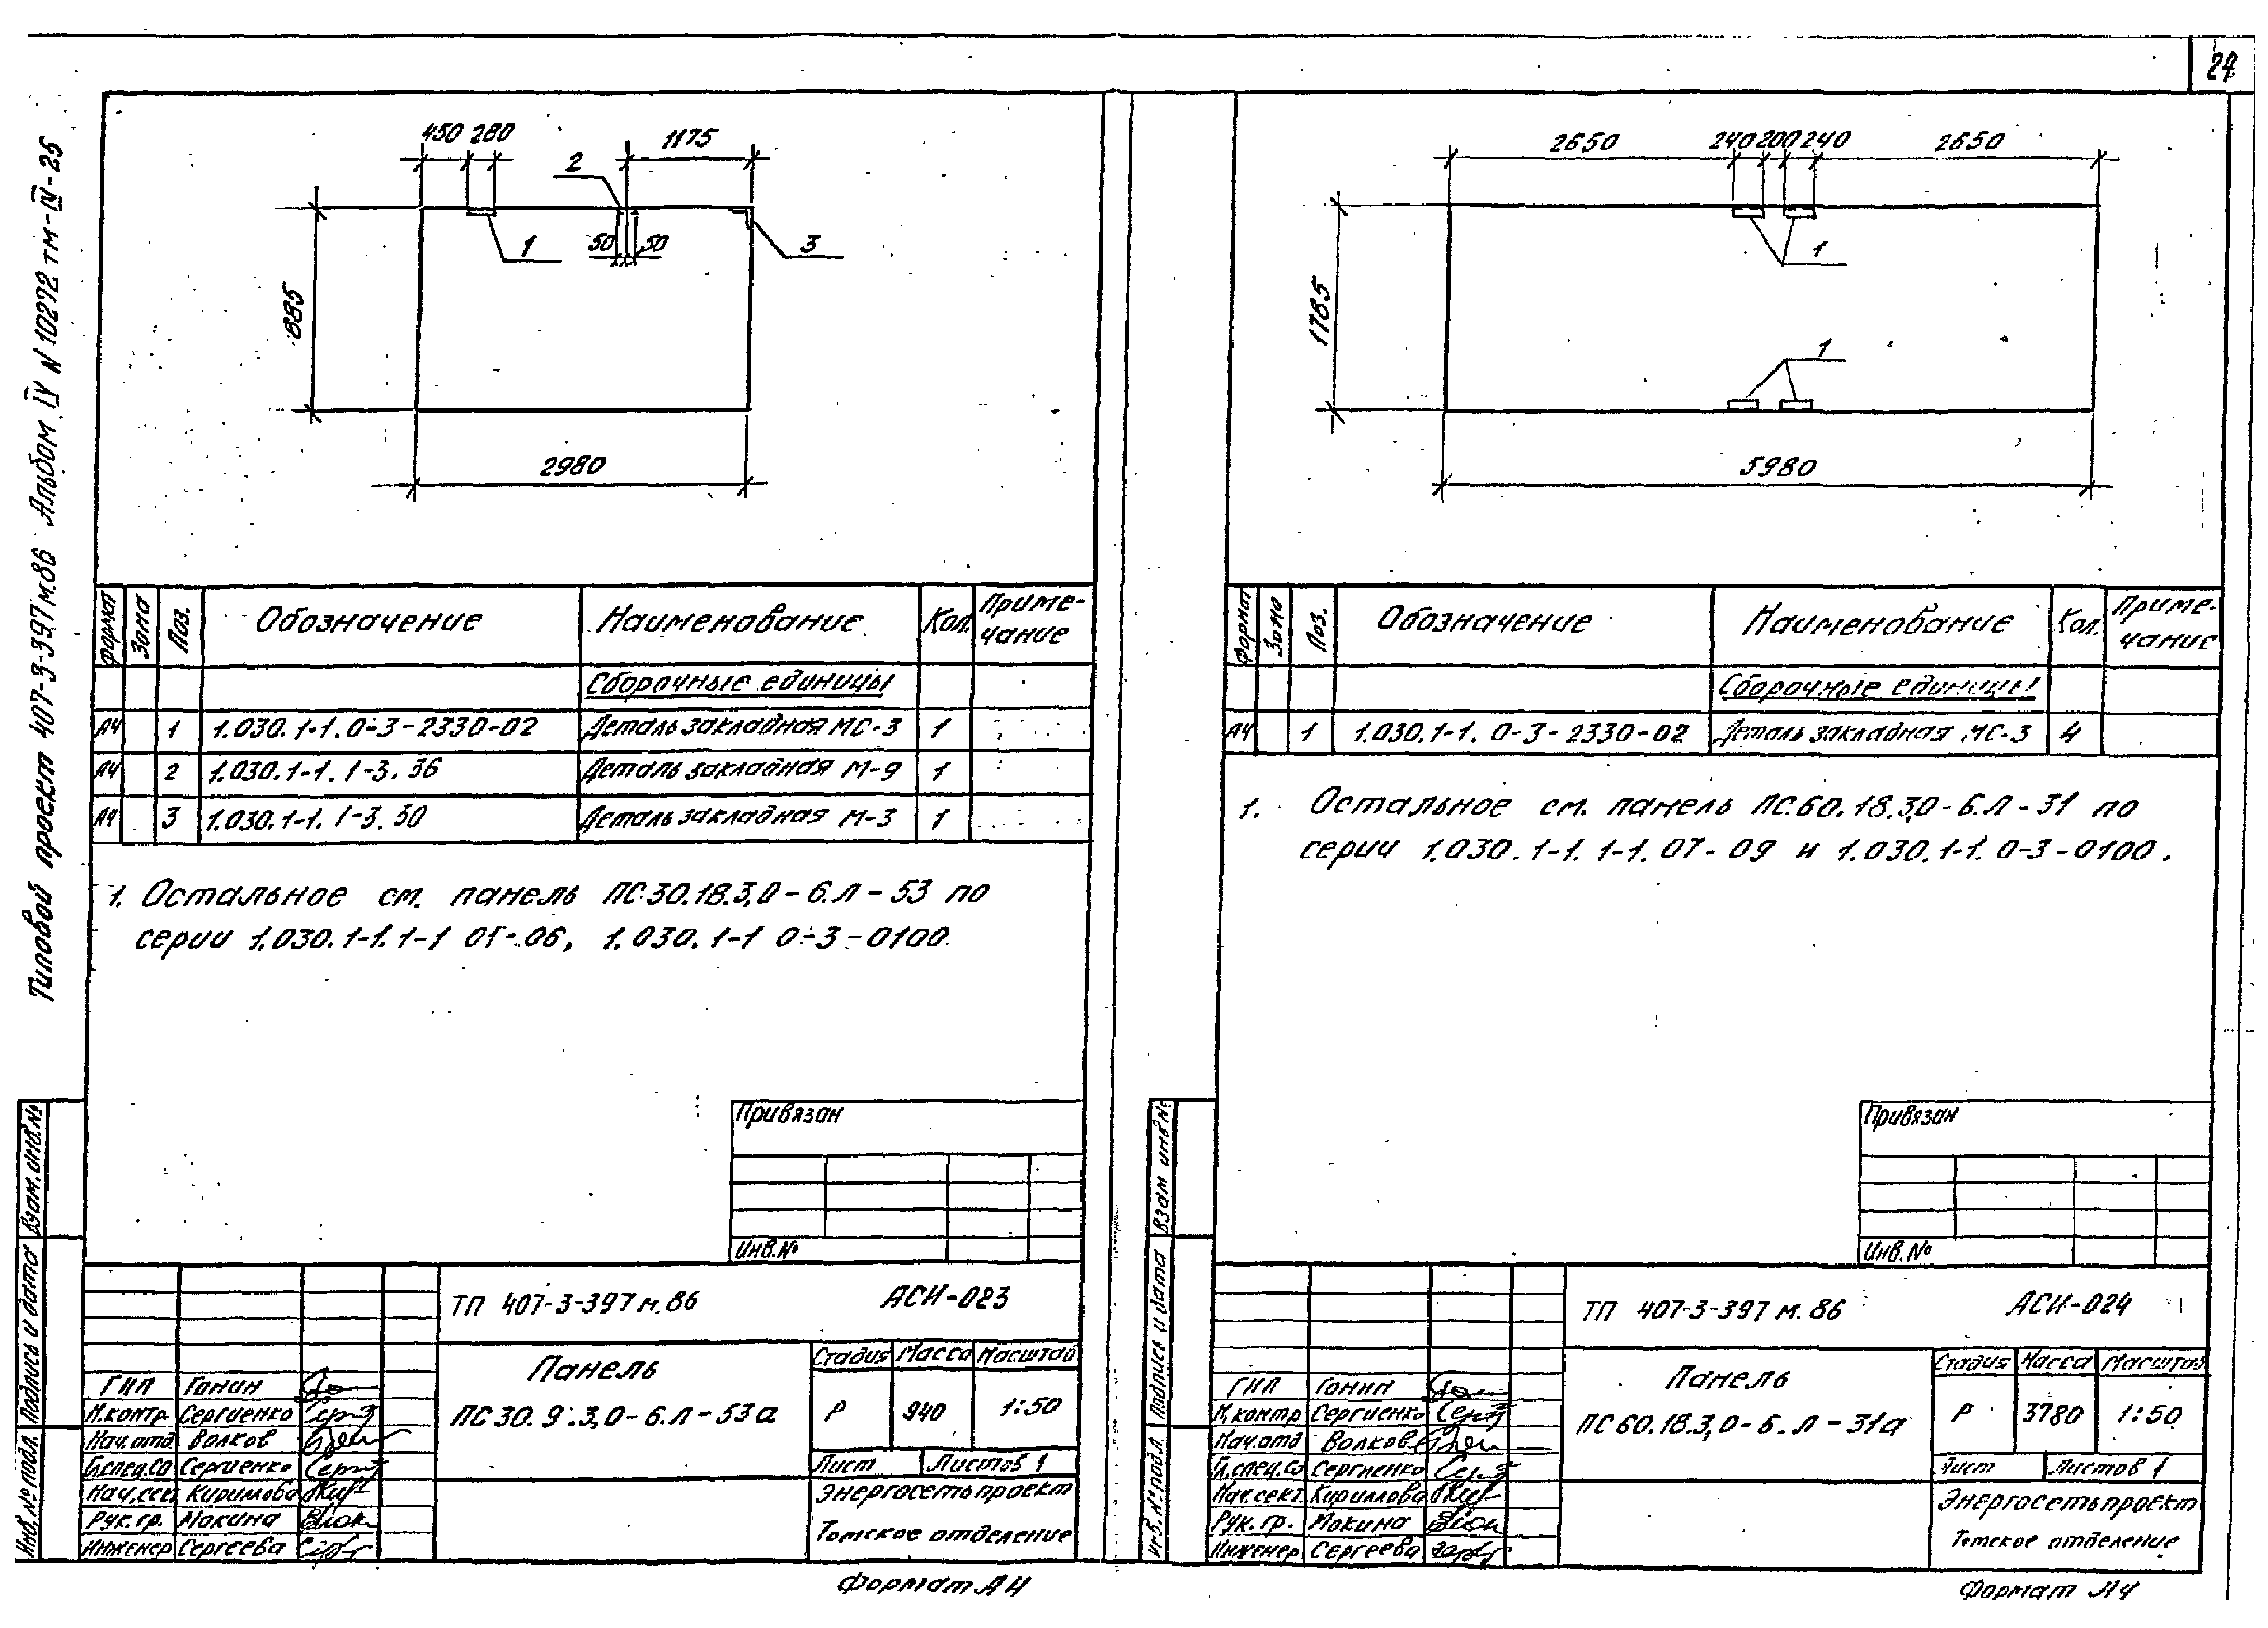 24
Типовой проект 407-3-397м.86 Альбом IV N 10272тм-IV-25
450 280
1175
2
1
50
50
3
885
2980
Формат
Зона
Поз.
Обозначение
Наименование
Кол.
Приме-
чание
Сборочные единицы
А4 1 1.030.1-1. 0-3-2330-02 Деталь закладная МС-3 1
А4 2 1.030.1-1. 1-3. 36 Деталь закладная М-9 1
А4 3 1.030.1-1. 1-3. 30 Деталь закладная М-3 1
1. Остальное см. панель ПС30.18.3,0-6.Л-53 по
серии 1.030.1-1. 1-1 01-06, 1.030.1-1 0-3-0100.
Привязан
Инв.№
Взам.инв.№
Подпись и дата
Инв.№ подл.
ТП 407-3-397м.86 АСИ-023
Панель
ПС30.9.3,0-6.Л-53а
Стадия Масса Масштаб
Р 940 1:50
Лист Листов 1
Энергосетьпроект
Томское отделение
ГИП Гонин
Н.контр. Сергиенко
Нач.отд Волков
Гл.спец.СО Сергиенко
Нач.сек. Кириллова
Рук.гр. Мокина
Инженер Сергеева
Формат А4
2650 240 200 240 2650
1
1785
1
5980
Формат
Зона
Поз.
Обозначение
Наименование
Кол.
Приме-
чание
Сборочные единицы
А4 1 1.030.1-1. 0-3-2330-02 Деталь закладная МС-3 4
1. Остальное см. панель ПС.60.18.3,0-6.Л-31 по
серии 1.030.1-1. 1-1. 07-09 и 1.030.1-1. 0-3-0100.
Привязан
Инв.№
Взам инв№
Подпись и дата
Инв.№ подл.
ТП 407-3-397м.86 АСИ-024
Панель
ПС60.18.3,0-6.Л-31а
Стадия Масса Масштаб
Р 3780 1:50
Лист Листов 1
Энергосетьпроект
Томское отделение
ГИП Гонин
Н.контр Сергиенко
Нач.отд Волков
Гл.спец.СО Сергиенко
Нач.сект. Кириллова
Рук.гр. Мокина
Инженер Сергеева
Формат А4